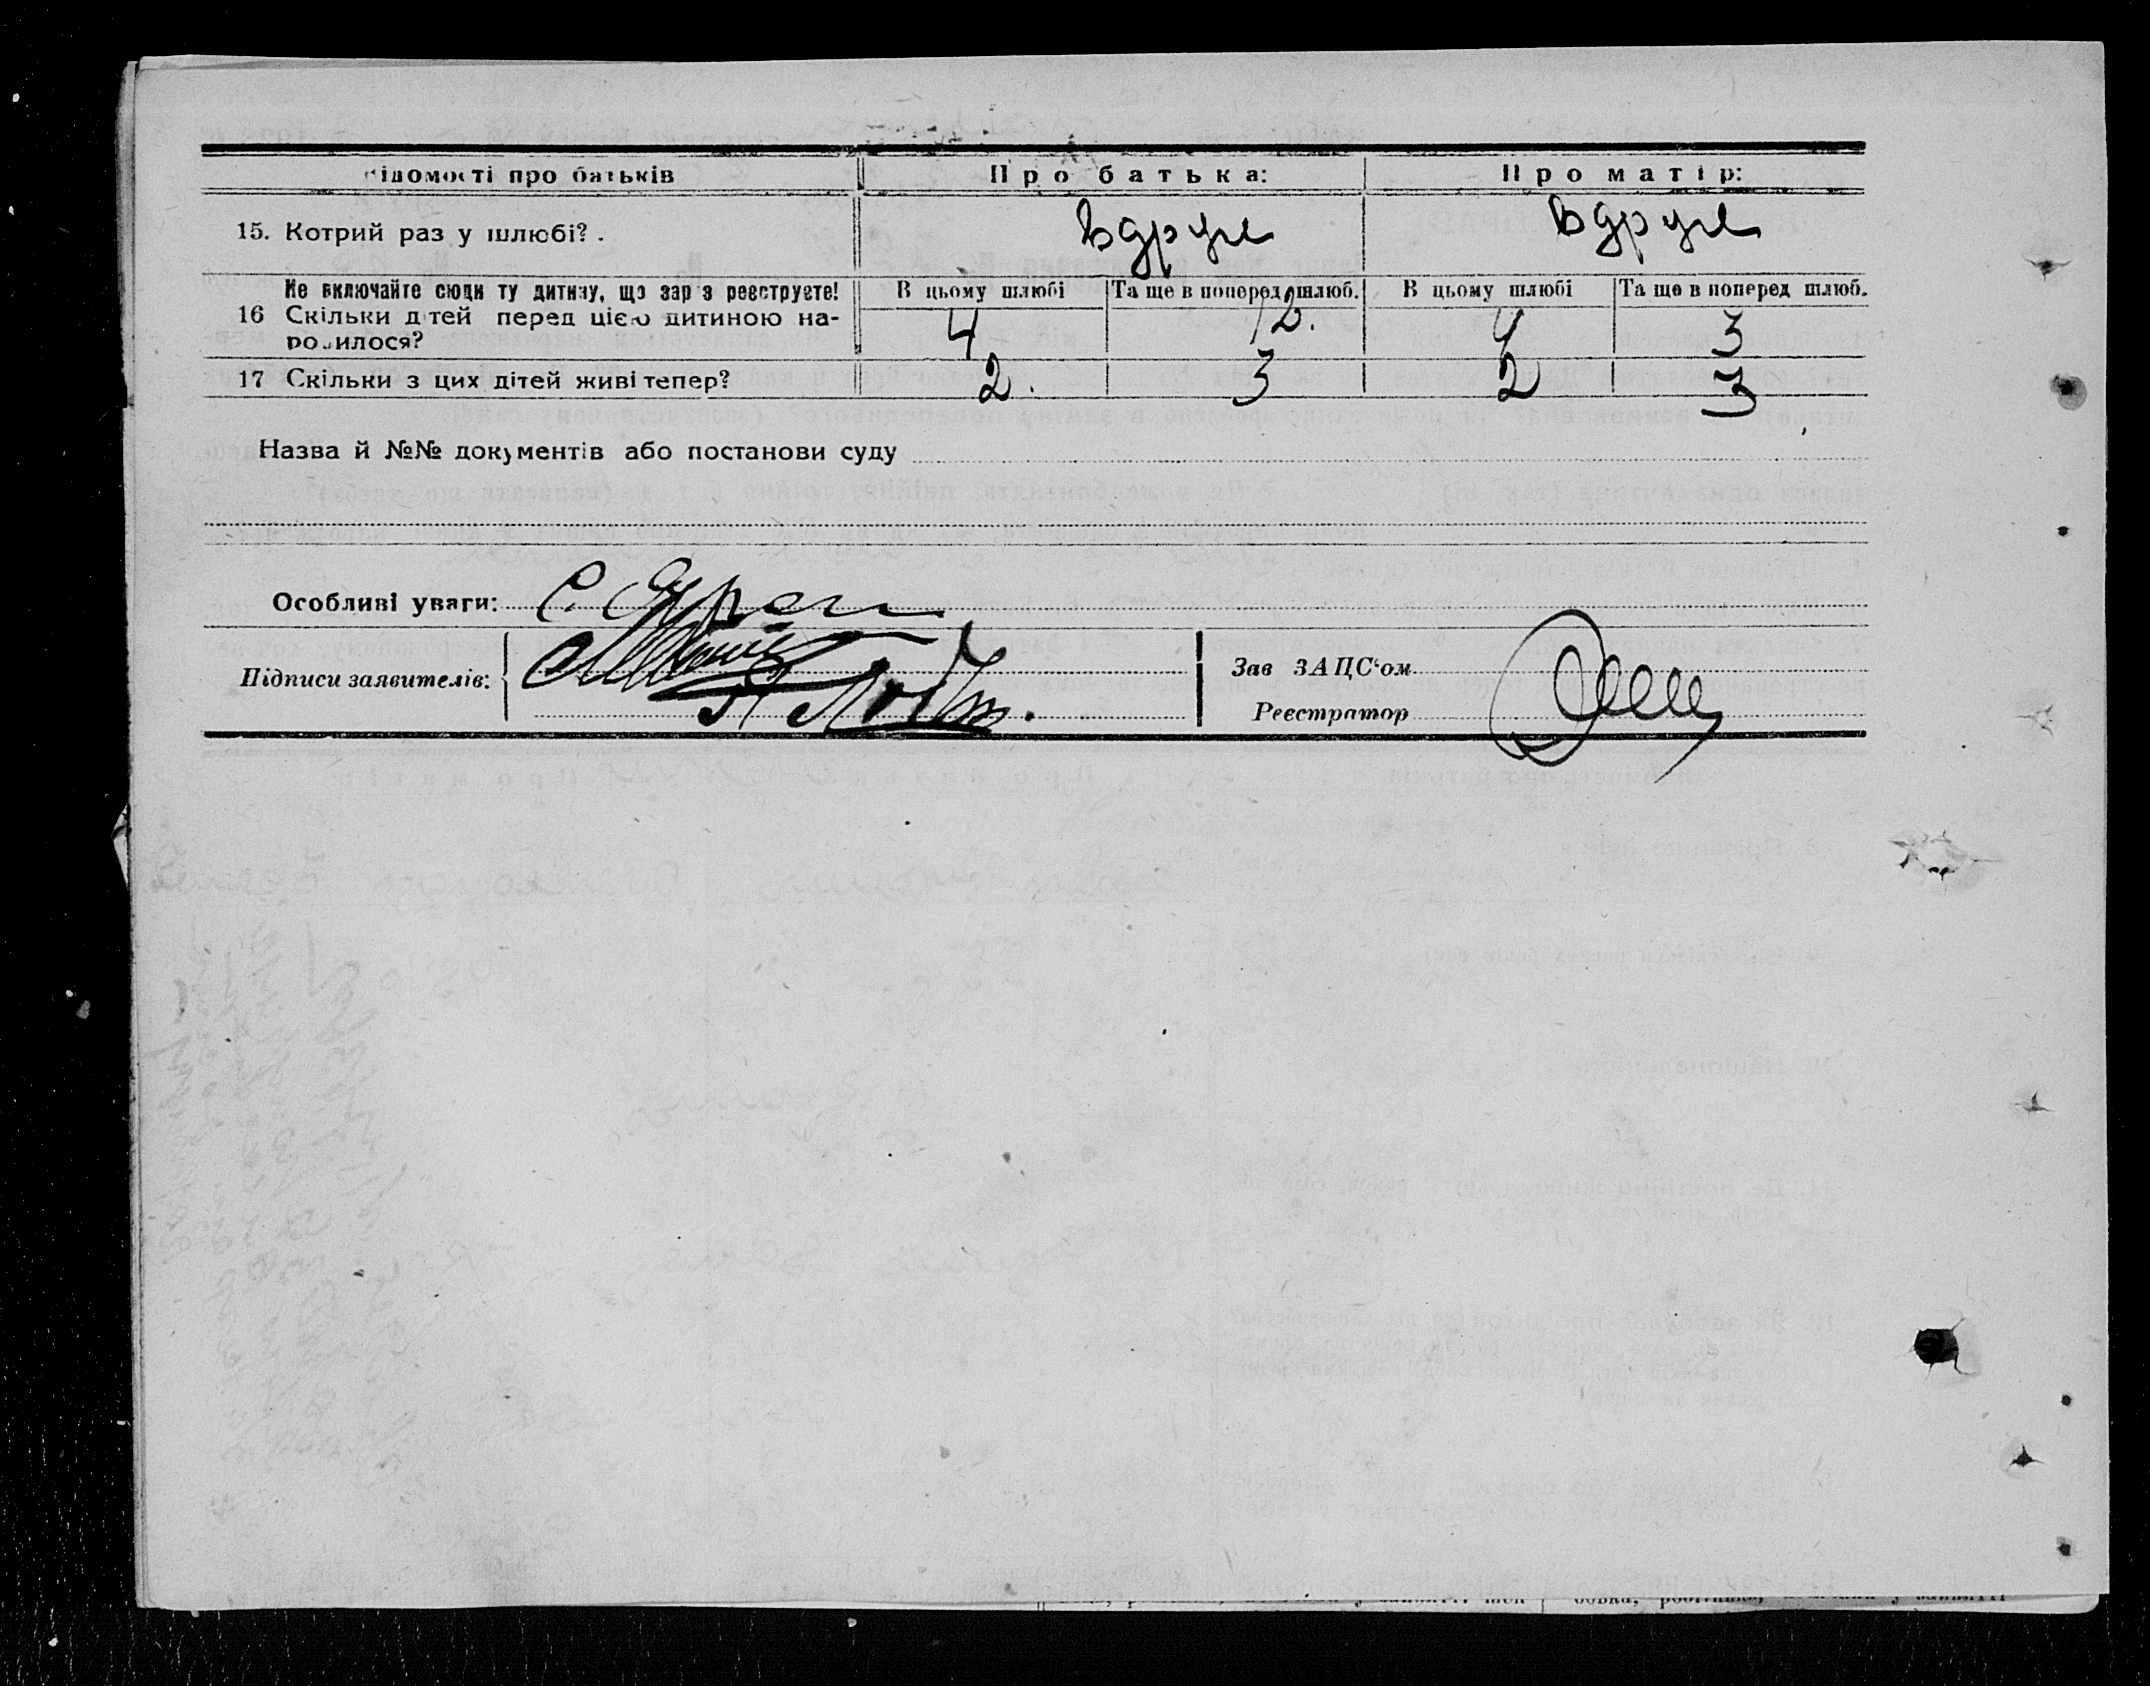 ідомості про батьків Про батька: Про матір:
15. Котрий раз у шлюбі? . вдруге вдруге
Не включайте сюди ту дитину, що зар з реєструєте! В цьому шлюбі Та ще в поперед шлюб. В цьому шлюбі Та ще в поперед шлюб.
16 Скільки дітей перед цією дитиною на-
родилося? 4 12. 4 3
17 Скільки з цих дітей живі тепер? 2. 3 2 3
Назва й №№ документів або постанови суду
Особливі уваги:
Підписи заявителів:
Зав ЗАЦС'ом
Реєстратор